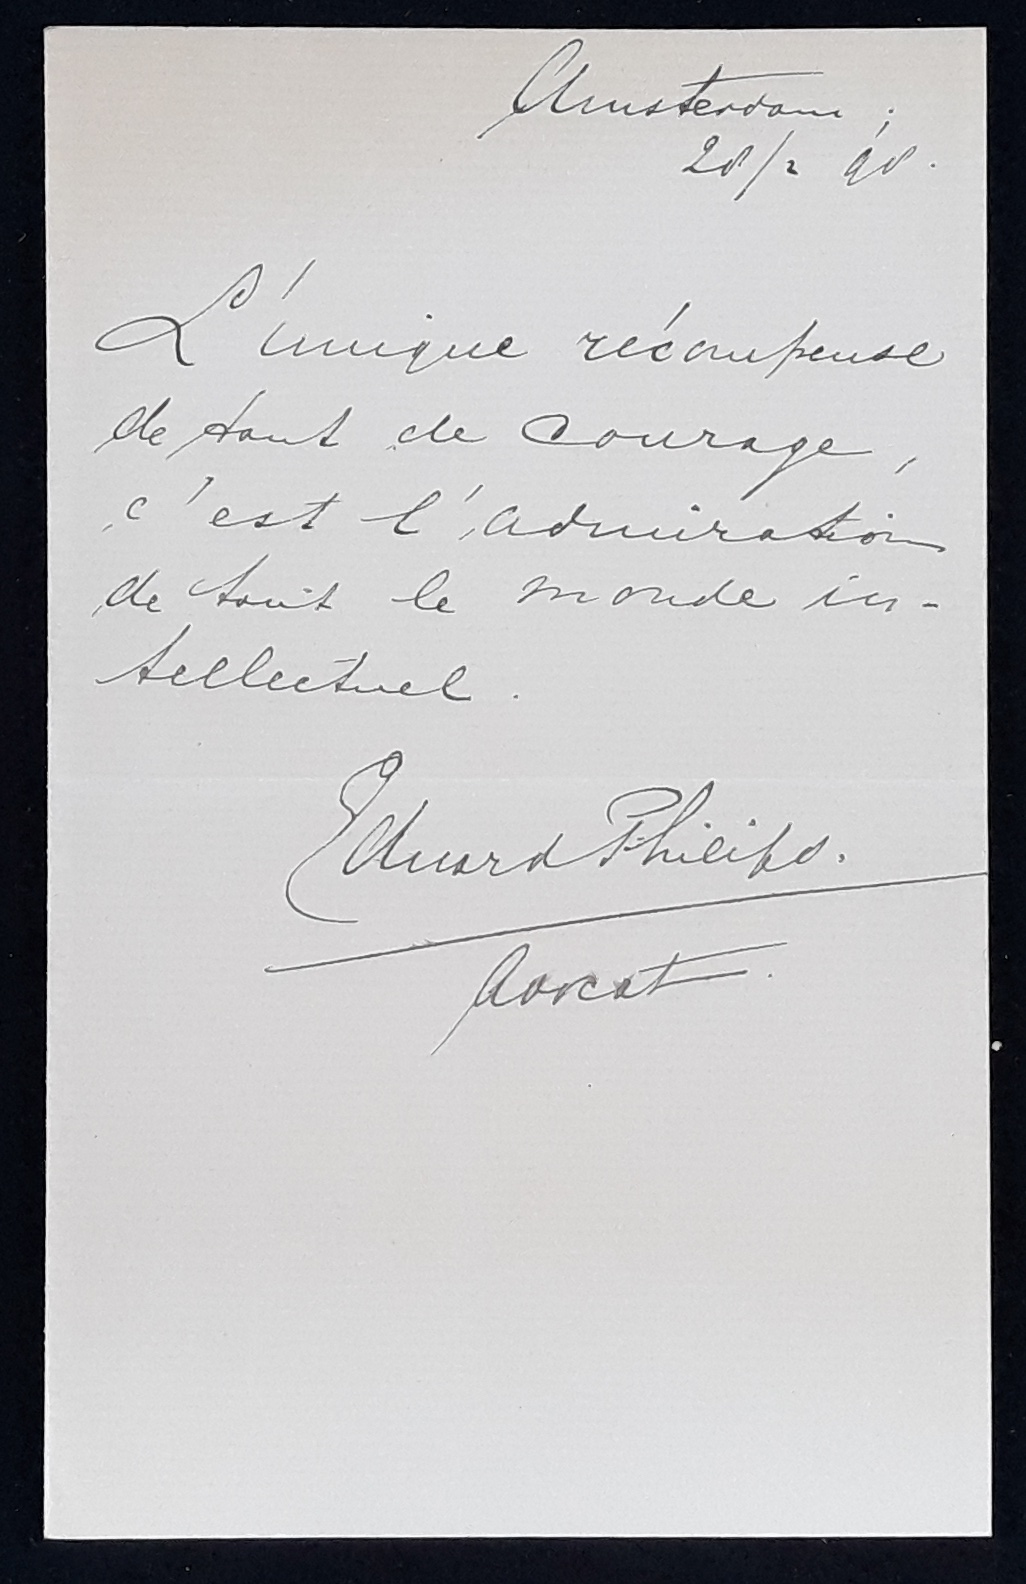 Amsterdam,
28/2 98.
L'unique récompense
de tant de courage,
c'est l'admiration
de tout le monde in-
tellectuel.
Eduard Philips.
Avocat.